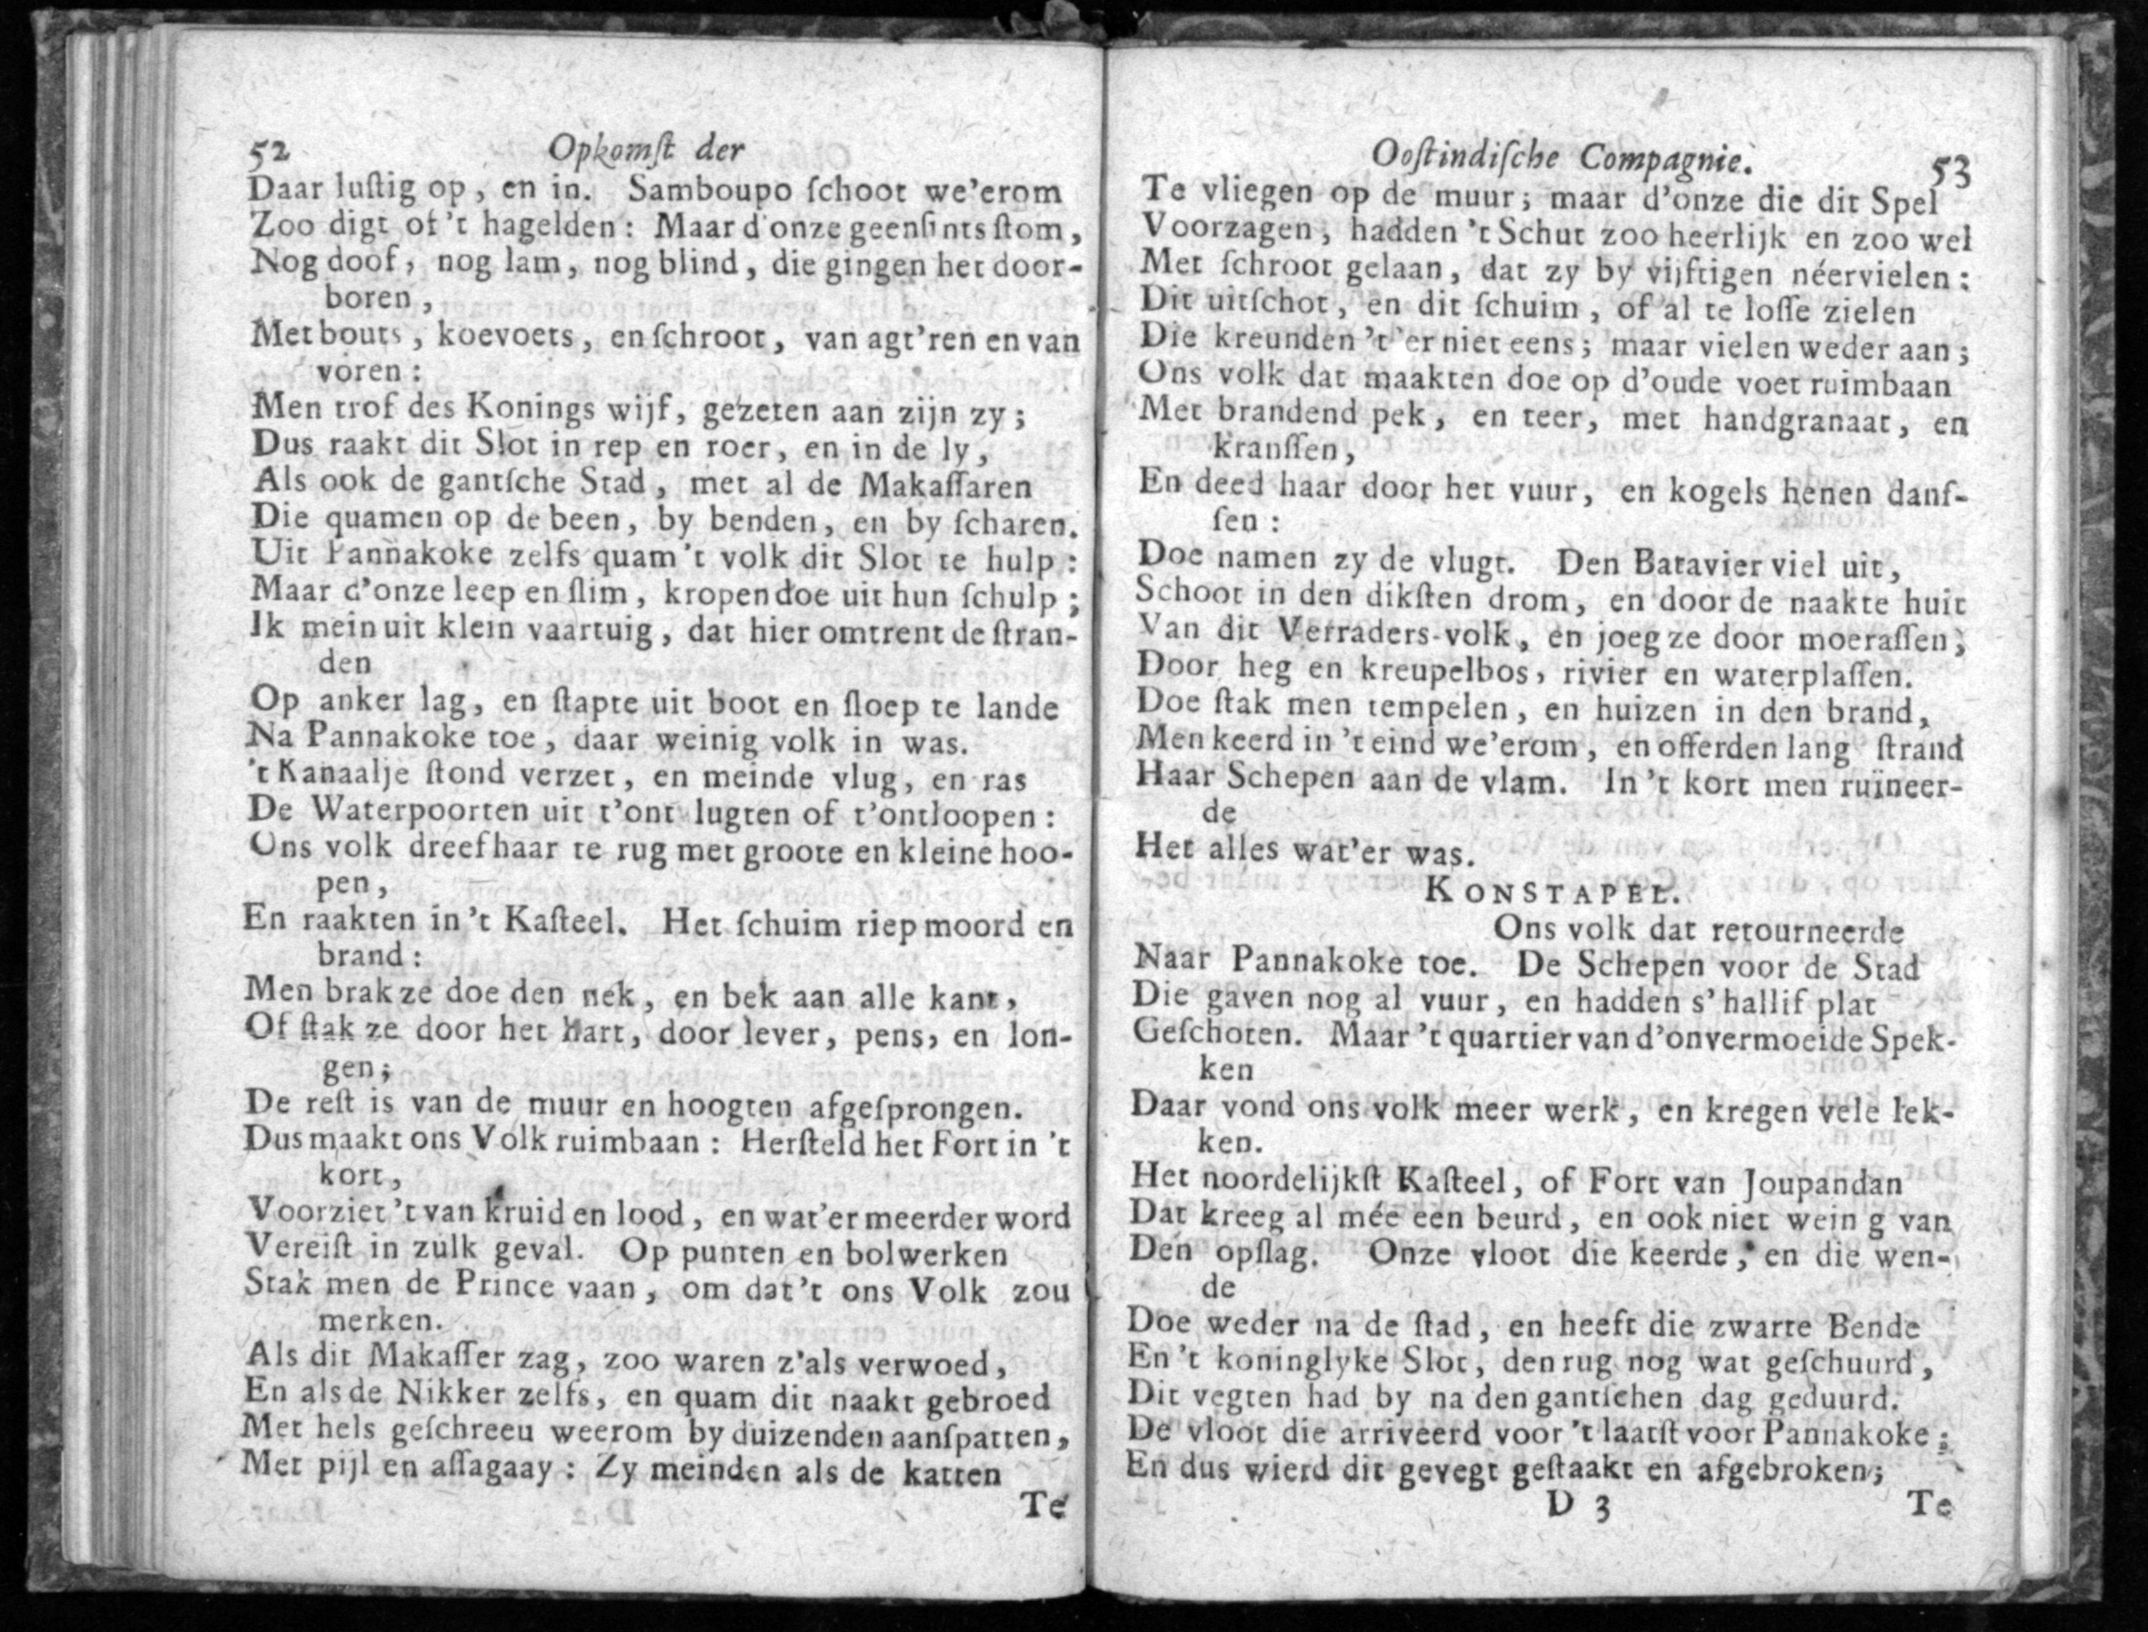 52 Opkomſt der
Daar luſtig op, en in. Samboupo ſchoot we'erom
Zoo digt of 't hagelden: Maar d'onze geenſints ſtom,
Nog doof, nog lam, nog blind, die gingen het door-
boren,
Met bouts, koevoets, en ſchroot, van agt'ren en van
voren:
Men trof des Konings wijf, gezeten aan zijn zy;
Dus raakt dit Slot in rep en roer, en in de ly,
Als ook de gantſche Stad, met al de Makaſſaren
Die quamen op de been, by benden, en by ſcharen.
Uit Pannakoke zelfs quam 't volk dit Slot te hulp:
Maar d'onze leep en ſlim, kropen doe uit hun ſchulp;
Ik mein uit klein vaartuig, dat hier omtrent de ſtran-
den
Op anker lag, en ſtapte uit boot en ſloep te lande
Na Pannakoke toe, daar weinig volk in was.
't Kanaalje ſtond verzet, en meinde vlug, en ras
De Waterpoorten uit t'ont lugten of t'ontloopen:
Ons volk dreef haar te rug met groote en kleine hoo-
pen,
En raakten in 't Kaſteel. Het ſchuim riep moord en
brand:
Men brak ze doe den nek, en bek aan alle kant,
Of ſtak ze door het hart, door lever, pens, en lon-
gen;
De reſt is van de muur en hoogten afgeſprongen.
Dus maakt ons Volk ruimbaan: Herſteld het Fort in 't
kort,
Voorziet 't van kruid en lood, en wat'er meerder word
Vereiſt in zulk geval. Op punten en bolwerken
Stak men de Prince vaan, om dat 't ons Volk zou
merken.
Als dit Makaſſer zag, zoo waren z'als verwoed,
En als de Nikker zelfs, en quam dit naakt gebroed
Met hels geſchreeu weerom by duizenden aanſpatten,
Met pijl en aſſagaay: Zy meinden als de katten
Te
Ooſtindiſche Compagnie. 53
Te vliegen op de muur; maar d'onze die dit Spel
Voorzagen, hadden 't Schut zoo heerlijk en zoo wel
Met ſchroot gelaan, dat zy by vijftigen néervielen:
Dit uitſchot, en dit ſchuim, of al te loſſe zielen
Die kreunden 't 'er niet eens; maar vielen weder aan;
Ons volk dat maakten doe op d'oude voet ruimbaan
Met brandend pek, en teer, met handgranaat, en
kranſſen,
En deed haar door het vuur, en kogels henen danſ-
ſen:
Doe namen zy de vlugt. Den Batavier viel uit,
Schoot in den dikſten drom, en door de naakte huit
Van dit Verraders-volk, en joeg ze door moeraſſen;
Door heg en kreupelbos, rivier en waterplaſſen.
Doe ſtak men tempelen, en huizen in den brand,
Men keerd in 't eind we'erom, en offerden lang ſtrand
Haar Schepen aan de vlam. In 't kort men ruïneer-
de
Het alles wat'er was.
KONSTAPEL.
Ons volk dat retourneerde
Naar Pannakoke toe. De Schepen voor de Stad
Die gaven nog al vuur, en hadden s'hallif plat
Geſchoten. Maar 't quartier van d'onvermoeide Spek-
ken
Daar vond ons volk meer werk, en kregen vele lek-
ken.
Het noordelijkſt Kaſteel, of Fort van Joupandan
Dat kreeg al mée een beurd, en ook niet wein g van
Den opſlag. Onze vloot die keerde, en die wen-
de
Doe weder na de ſtad, en heeft die zwarte Bende
En 't koninglyke Slot, den rug nog wat geſchuurd,
Dit vegten had by na den gantſchen dag geduurd.
De vloot die arriveerd voor 't laatſt voor Pannakoke;
En dus wierd dit gevegt geſtaakt en afgebroken;
D 3 Te